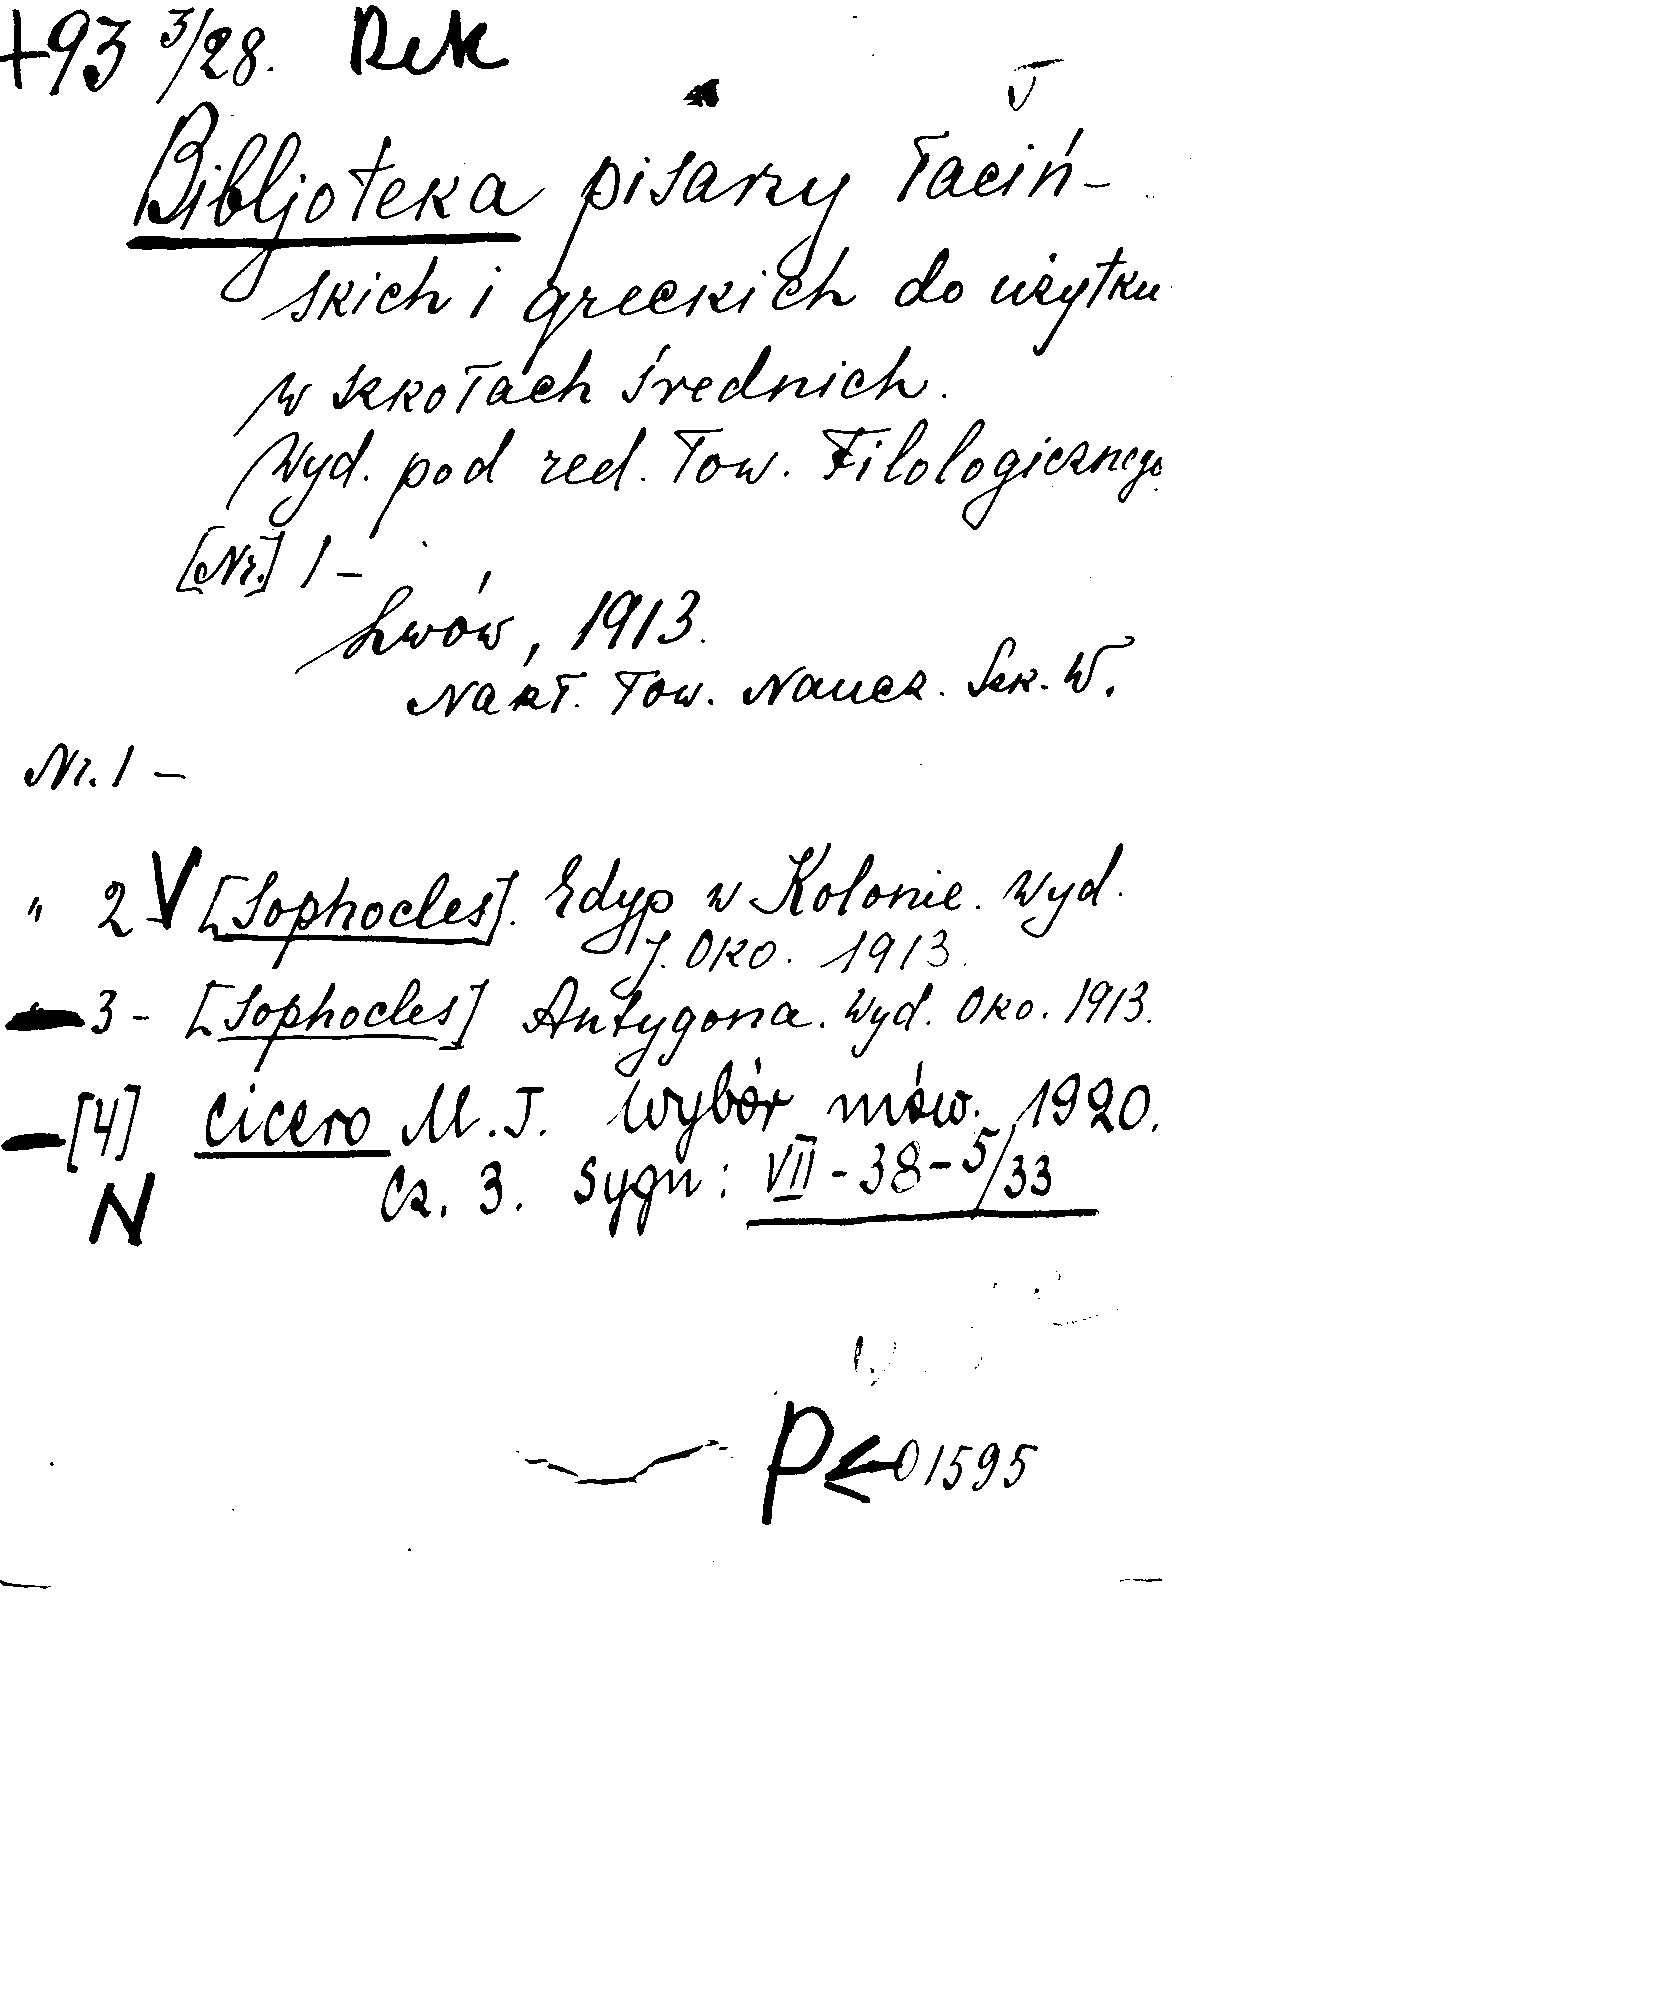 +93 3/28. Rek
Bibljoteka pisarzy łaciń-
skich i greckich do użytku
w szkołach średnich.
Wyd. pod red. Tow. Filologicznego
[Nr.] 1 -
Lwów, 1913.
Nakł. Tow. Naucz. Szk. W.
Nr. 1 -
" 2 V [Sophocles]. Edyp w Kolonie. Wyd.
J. Oko. 1913.
3 - [Sophocles] Antygona. Wyd. Oko. 1913.
- [4] Cicero M.T. Wybór mów. 1920.
N Cz. 3. Sygn: VII - 38 - 5/33
01595